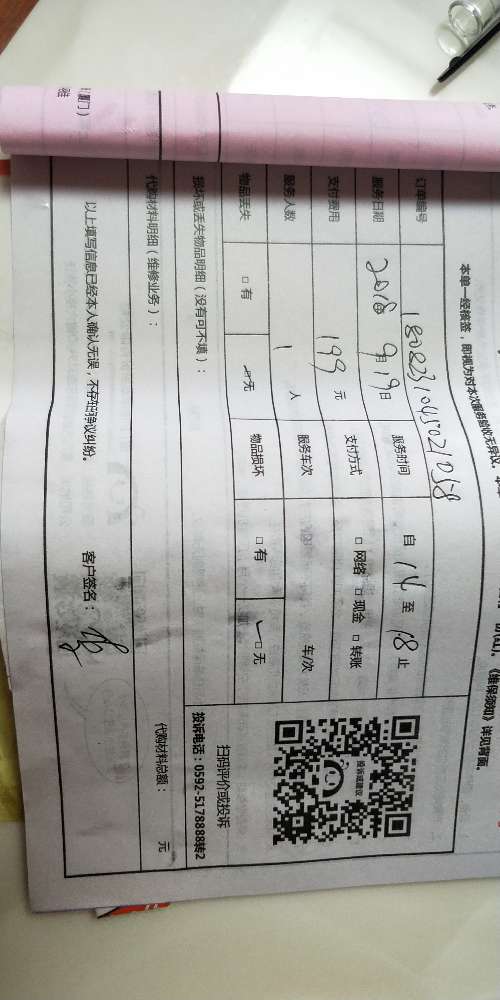 本单一经核签，即视为对本次服务验收无异议。
《维保须知》详见背面。
订单编号 1808231045021058
服务日期 2018年9月19日 服务时间 自 14 至 18 止
支付费用 199 元 支付方式 □ 网络 □ 现金 □ 转账
服务人数 1 人 服务车次 车/次
物品丢失 □ 有 ☑无 物品损坏 □ 有 ☑ 无
损坏或丢失物品明细（没有可不填）：
投诉或建议
扫码评价或投诉
投诉电话：0592-5178888转2
代购材料明细（维修业务）：
代购材料总额： 元
以上填写信息已经本人确认无误，不存在争议纠纷。
客户签名：
厦门）